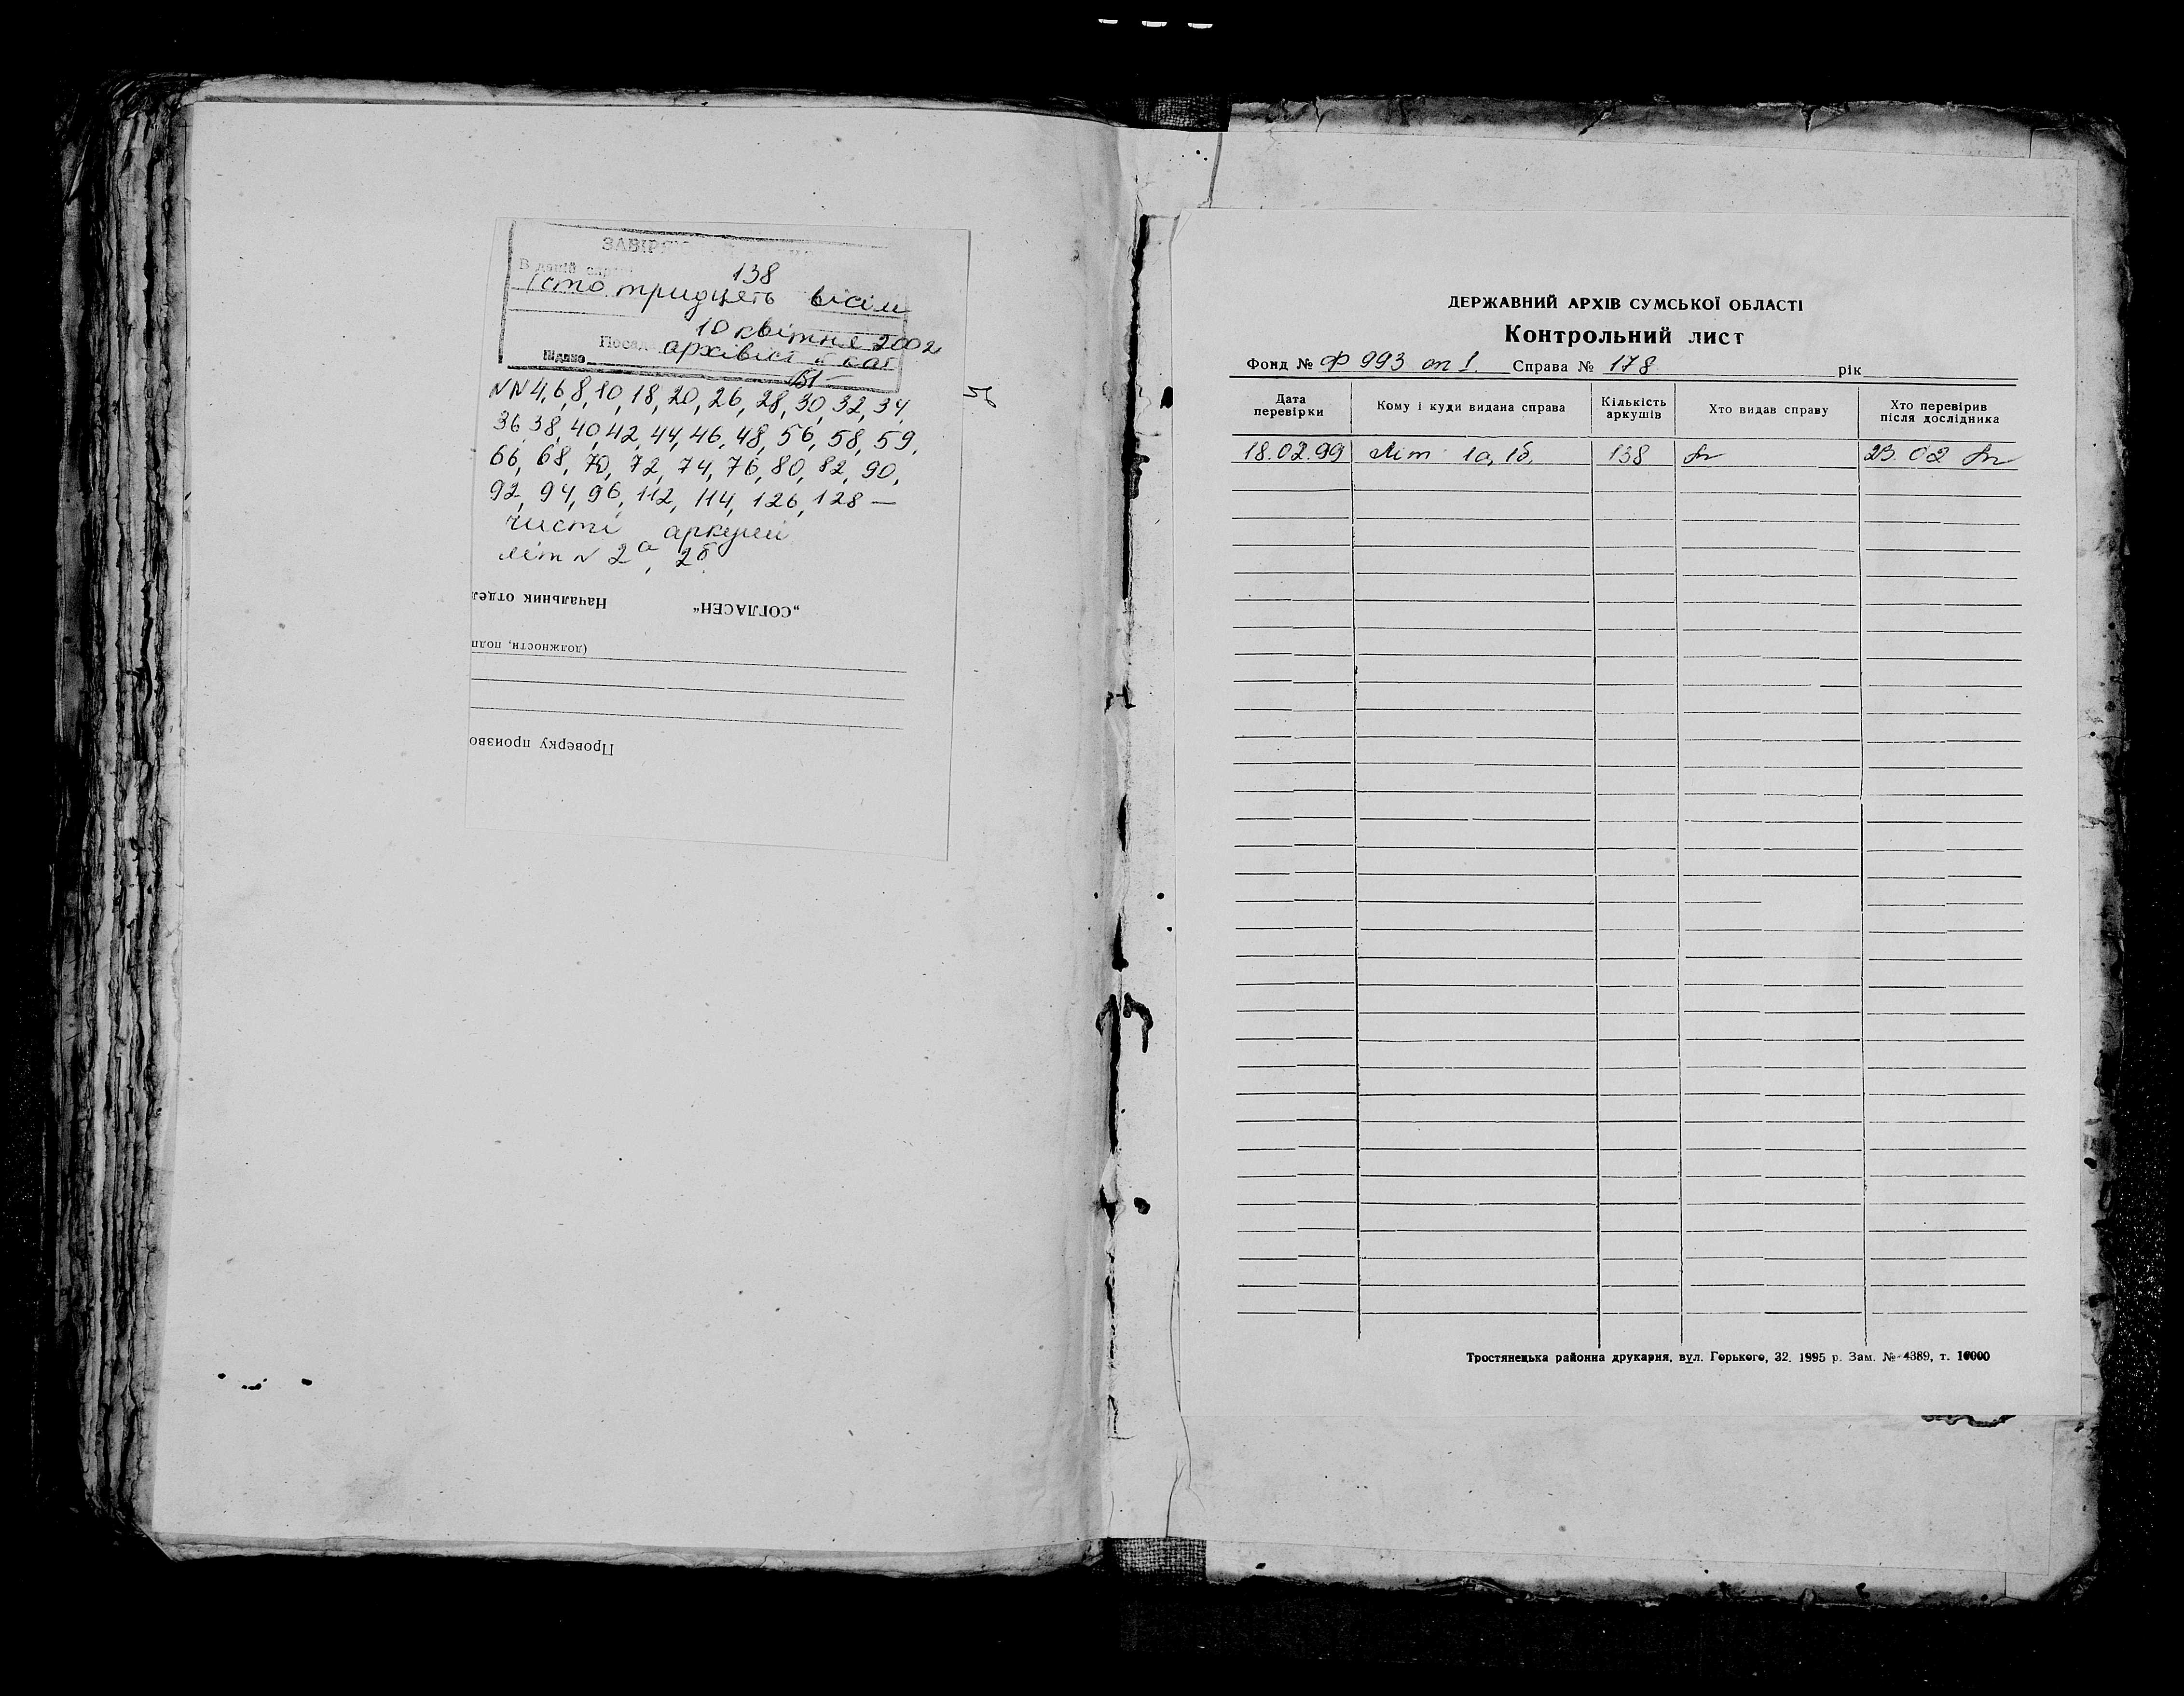 В даній справі 138
(сто тридцять вісім
10 квітня 2002
Посада архівіст
Підпис
NN 4, 6, 8, 10, 18, 20, 26, 28, 30, 32, 34
36, 38, 40, 42, 44, 46, 48, 56, 58, 59,
66, 68, 70, 72, 74, 76, 80, 82, 90,
92, 94, 96, 112, 114, 126, 128 —
чисті аркуші
літ N 2а, 2б
„СОГЛАСЕН“ Начальник отдел
(должности, подп
Проверку произво
ДЕРЖАВНИЙ АРХІВ СУМСЬКОЇ ОБЛАСТІ
Контрольний лист
Фонд № Ф 993 оп 1. Справа № 178 рік
Дата перевірки Кому і куди видана справа Кількість аркушів Хто видав справу Хто перевірив після дослідника
18.02.99 Літ 1а, 1б, 138 23.02
Тростянецька районна друкарня, вул. Горького, 32. 1995 р. Зам. № 4389, т. 10000